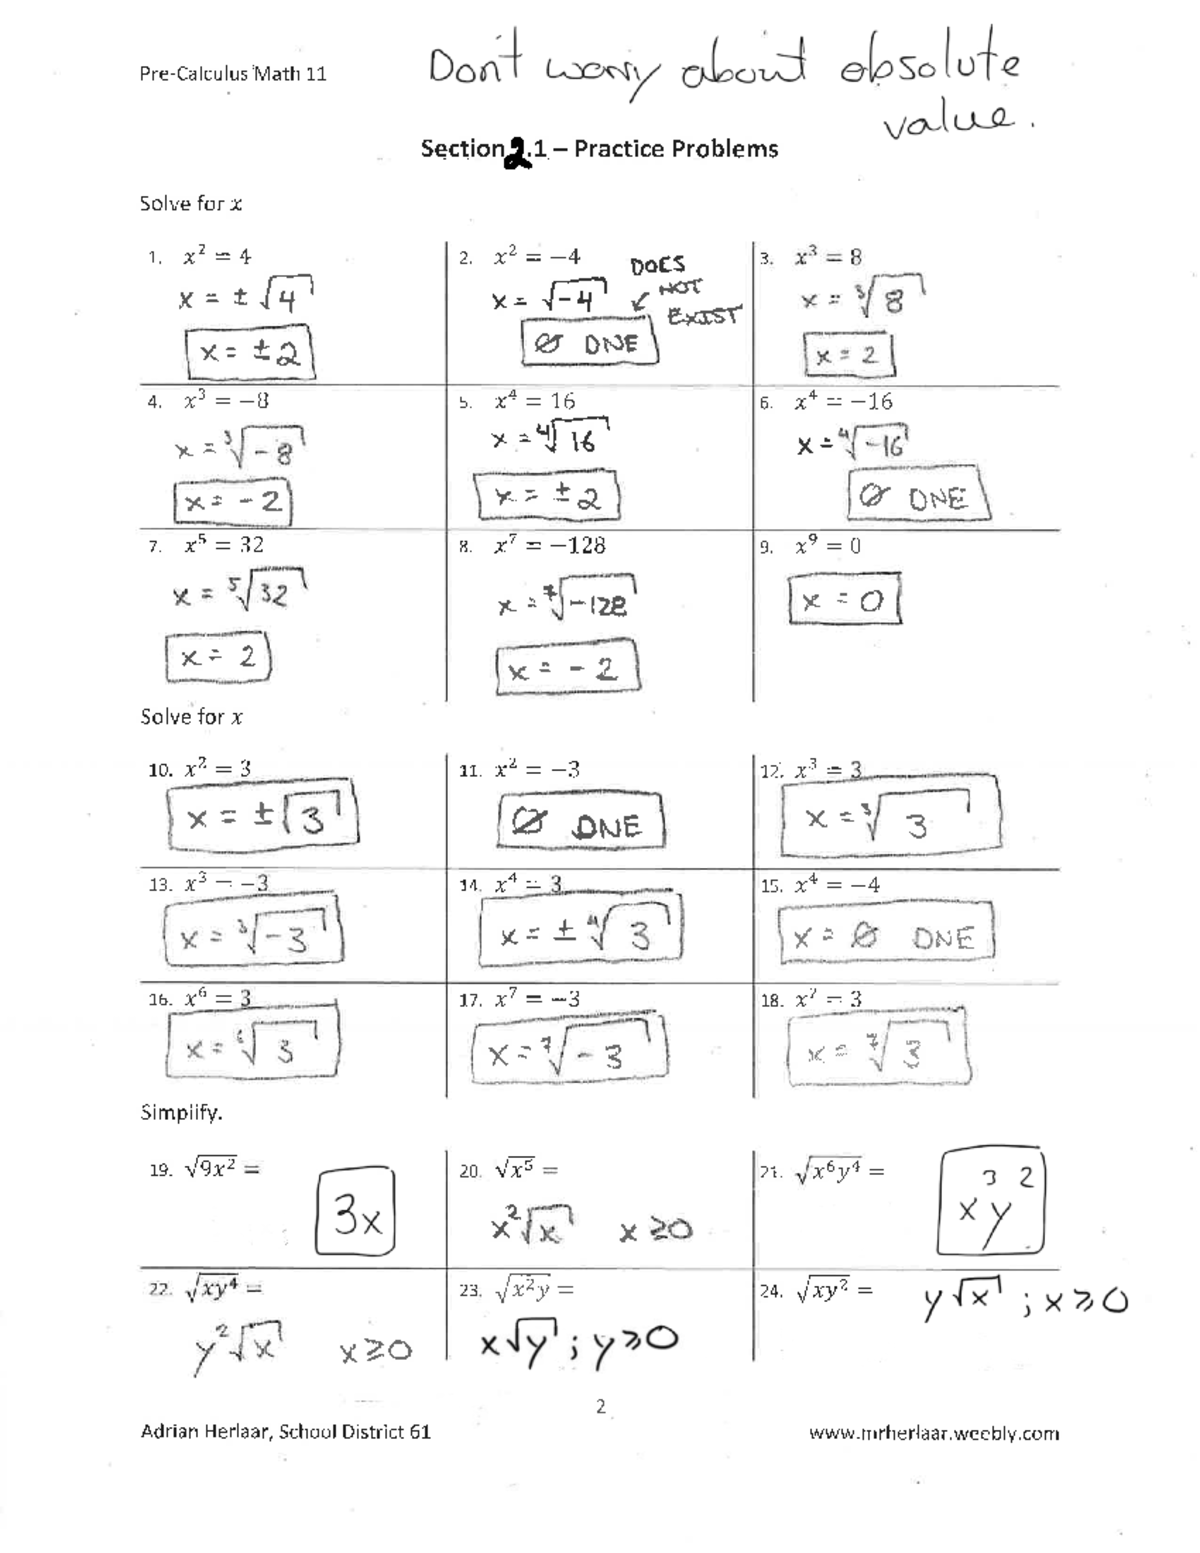 Pre-Calculus Math 11
Don't worry about absolute
value.
Section 2.1 – Practice Problems
Solve for x
1. x² = 4
x = ± √4
x = ± 2
2. x² = −4
x = √-4
DOES
NOT
EXIST
∅ DNE
3. x³ = 8
x = ³√8
x = 2
4. x³ = −8
x = ³√-8
x = - 2
5. x⁴ = 16
x = ⁴√16
x = ± 2
6. x⁴ = −16
x = ⁴√-16
∅ DNE
7. x⁵ = 32
x = ⁵√32
x = 2
8. x⁷ = −128
x = ⁷√-128
x = - 2
9. x⁹ = 0
x = 0
Solve for x
10. x² = 3
x = ±√3
11. x² = −3
∅ DNE
12. x³ = 3
x = ³√3
13. x³ = −3
x = ³√-3
14. x⁴ = 3
x = ± ⁴√3
15. x⁴ = −4
x = ∅ DNE
16. x⁶ = 3
x = ⁶√3
17. x⁷ = −3
x = ⁷√-3
18. x⁷ = 3
x = ⁷√3
Simplify.
19. √9x² =
3x
20. √x⁵ =
x²√x x ≥ 0
21. √x⁶y⁴ =
x³y²
22. √xy⁴ =
y²√x x ≥ 0
23. √x²y =
x√y ; y ≥ 0
24. √xy² =
y√x ; x ≥ 0
2
Adrian Herlaar, School District 61
www.mrherlaar.weebly.com